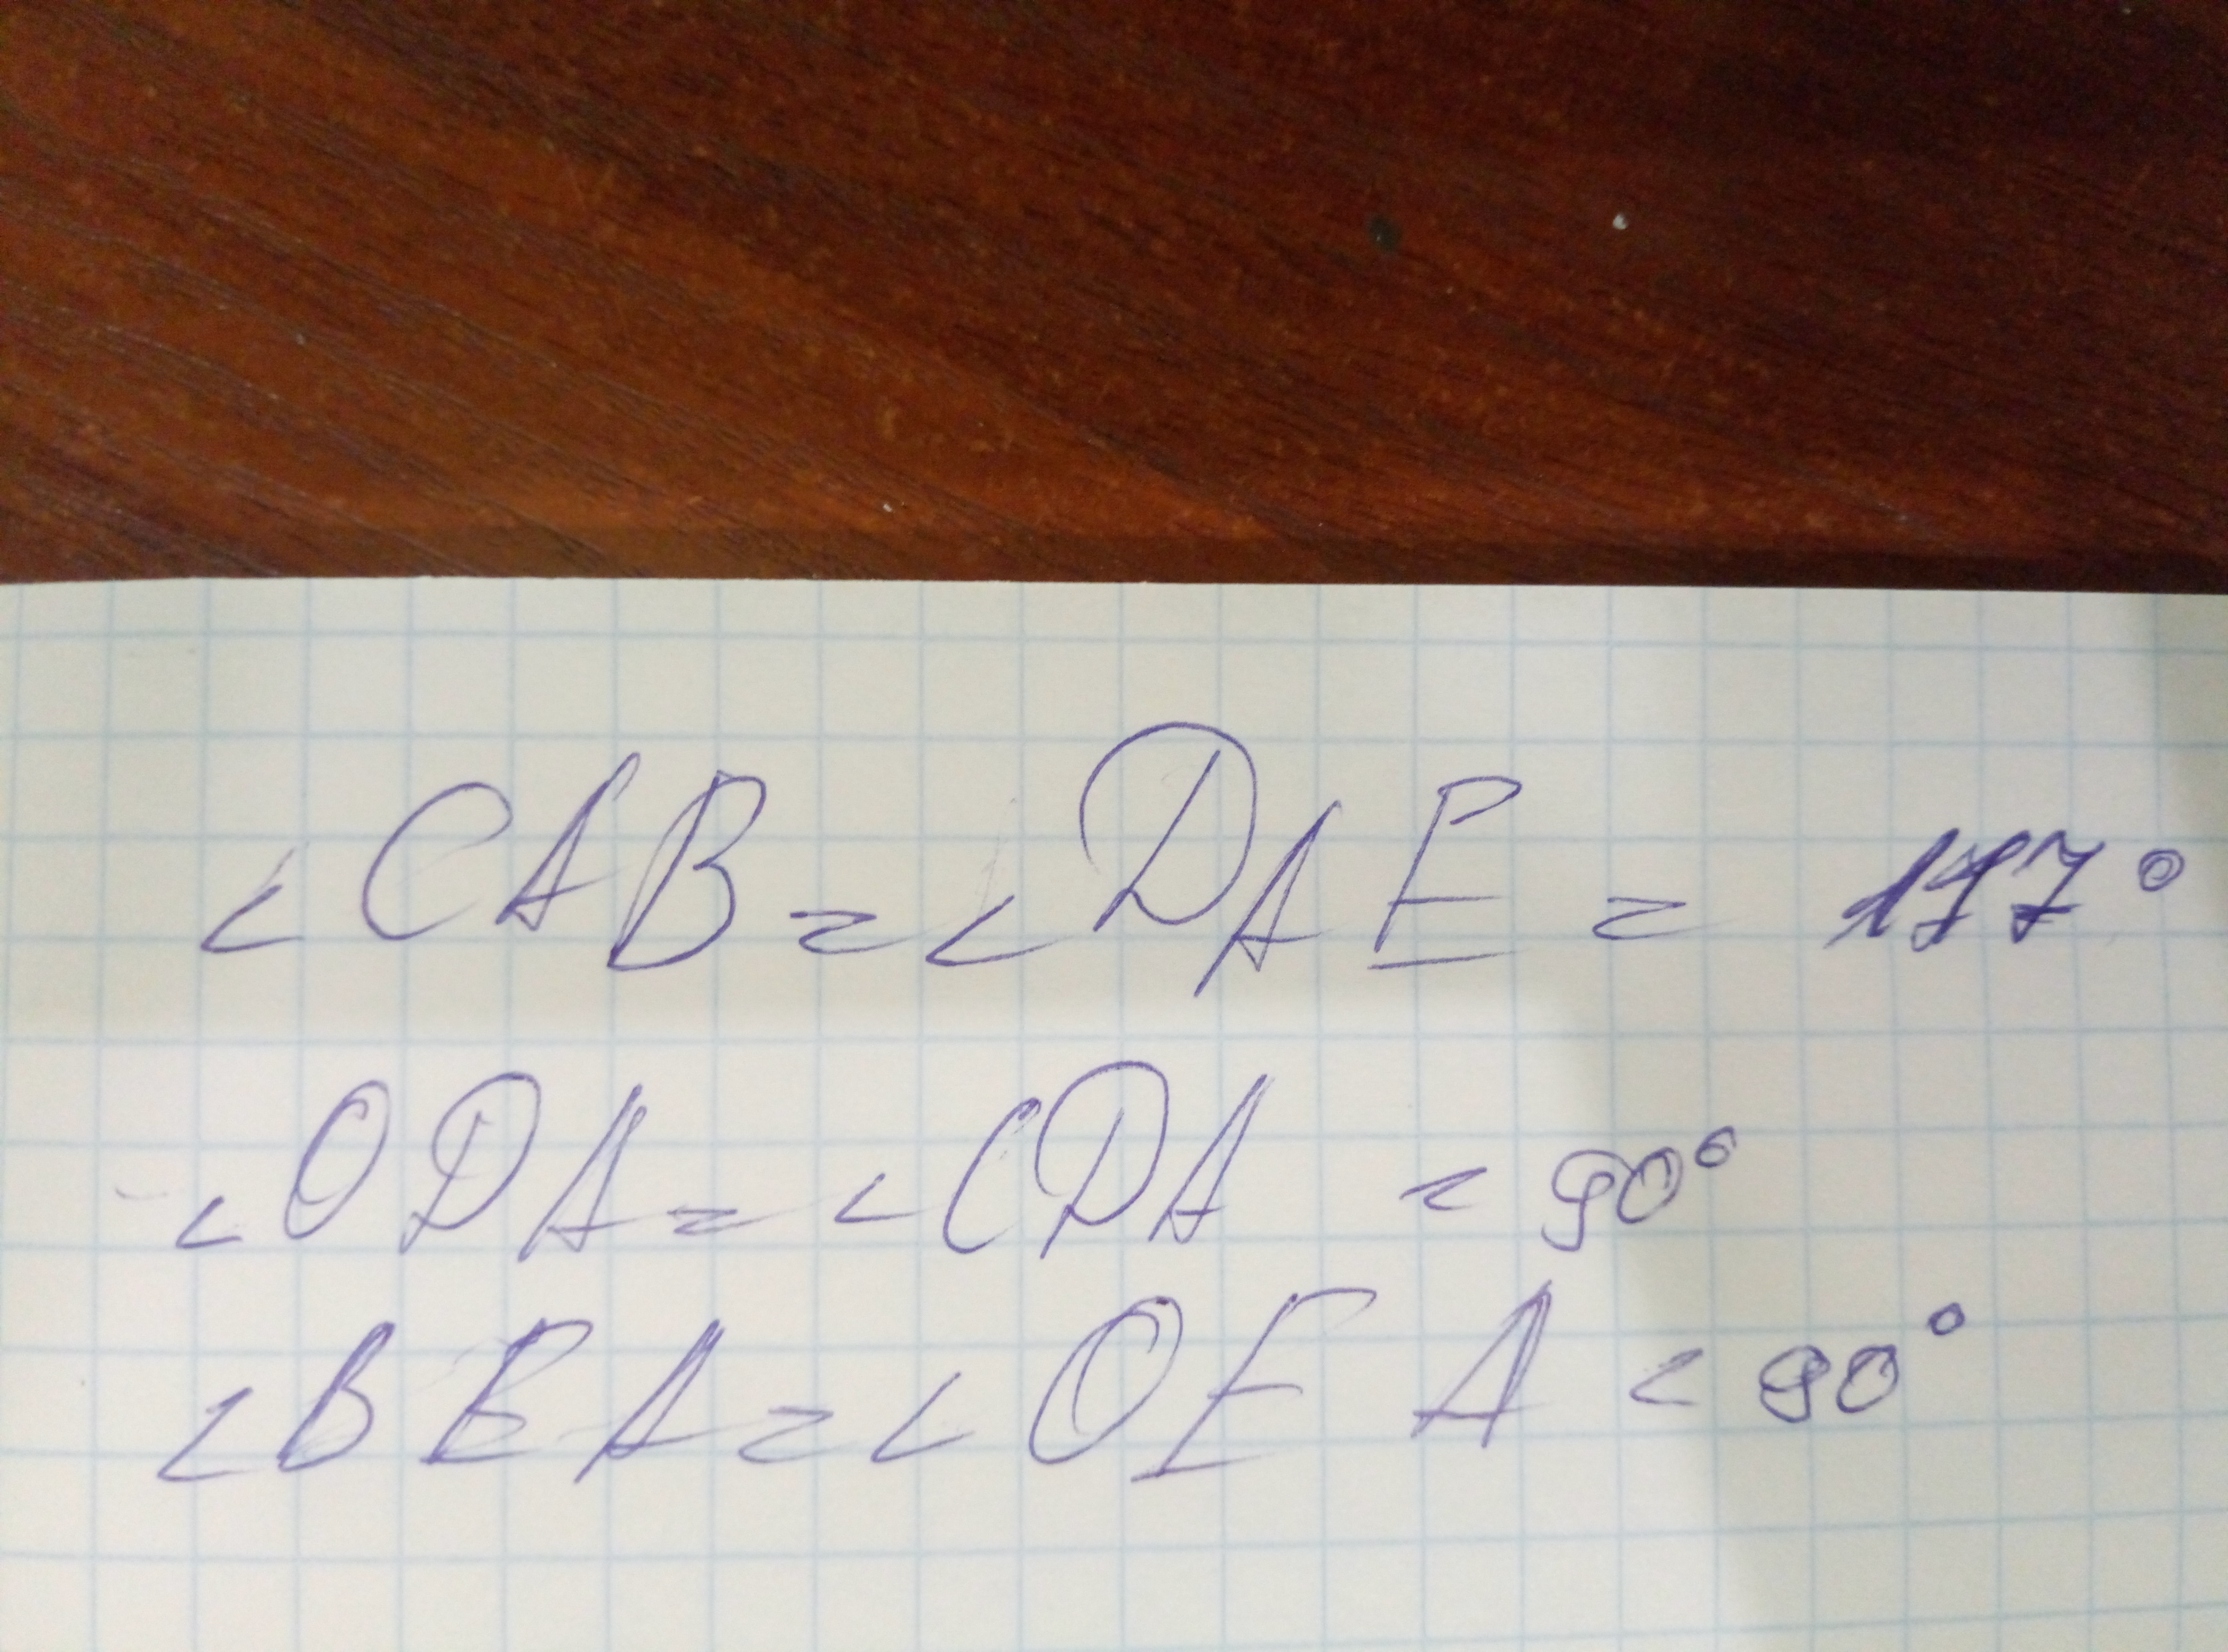 ∠CAB = ∠DAE = 177°
∠ODA = ∠CDA = 90°
∠BEA = ∠OEA = 90°